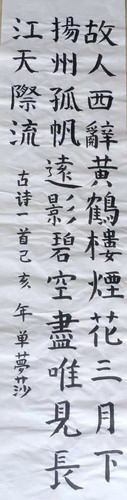 故人西辭黄鶴樓煙花三月下
揚州孤帆遠影碧空盡唯見長
江天際流
古诗一首己亥年單夢莎